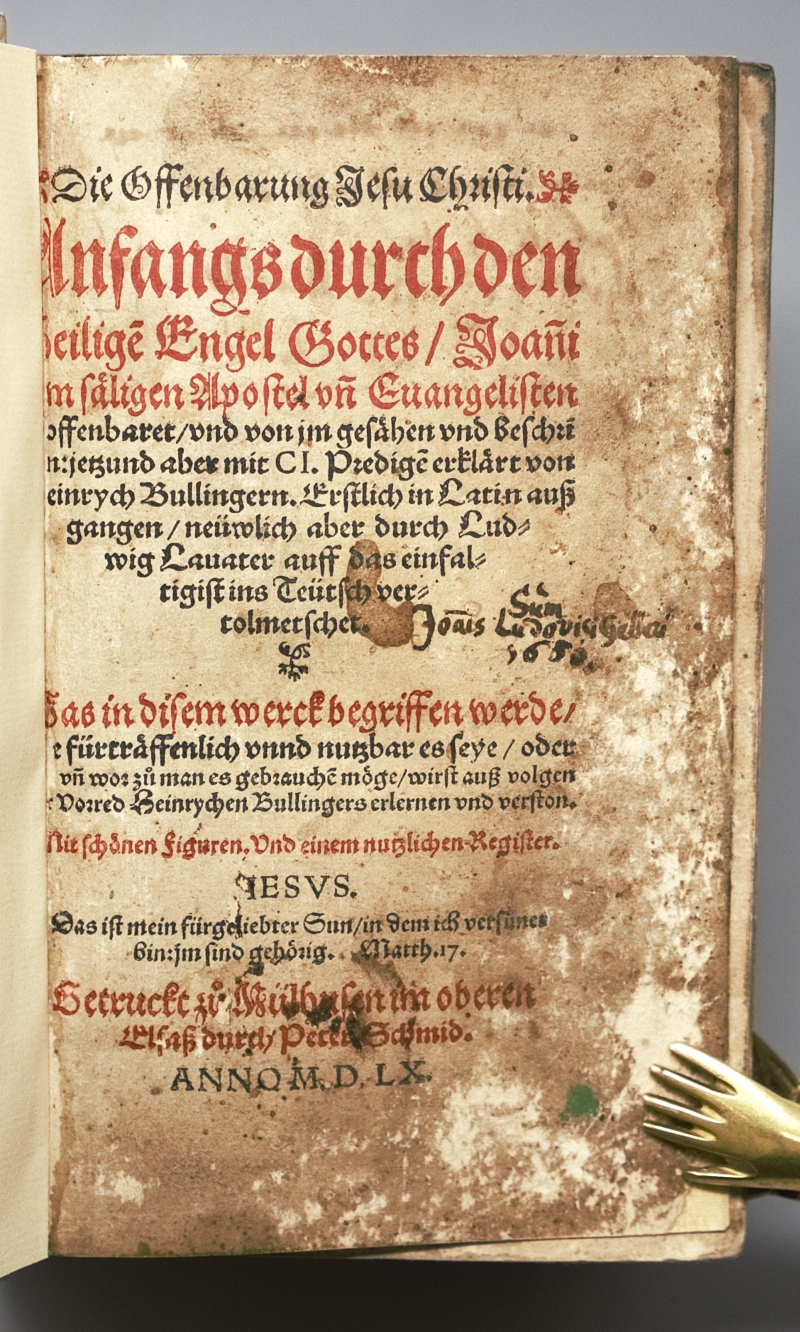 Die Offenbarung Jesu Christi.
Anfangs durch den
heiligē Engel Gottes / Joañi
m säligen Apostel vñ Euangelisten
offenbaret/vnd von jm gesähen vnd beschri
n: jetzund aber mit CI. Predigē erklärt von
einrych Bullingern. Erstlich in Latin auß
gangen / neüwlich aber durch Lud⸗
wig Lauater auff das einfal⸗
tigist ins Teütsch ver⸗
tolmetschet.
Sum
Joañis Ludovici
Was in disem werck begriffen werde/
e fürträffenlich vnnd nutzbar es seye / oder
vñ wor zů man es gebrauchē möge/wirst auß volgen
Vorred Heinrychen Bullingers erlernen vnd verston.
Mit schönen Figuren. Vnd einem nutzlichen Register.
IESVS.
Das ist mein fürgeliebter Sun/in dem ich versünet
bin: jm sind gehörig. Matth. 17.
Getruckt zů Mülhusen im oberen
Elsaß durch Peter Schmid.
ANNO M. D. LX.